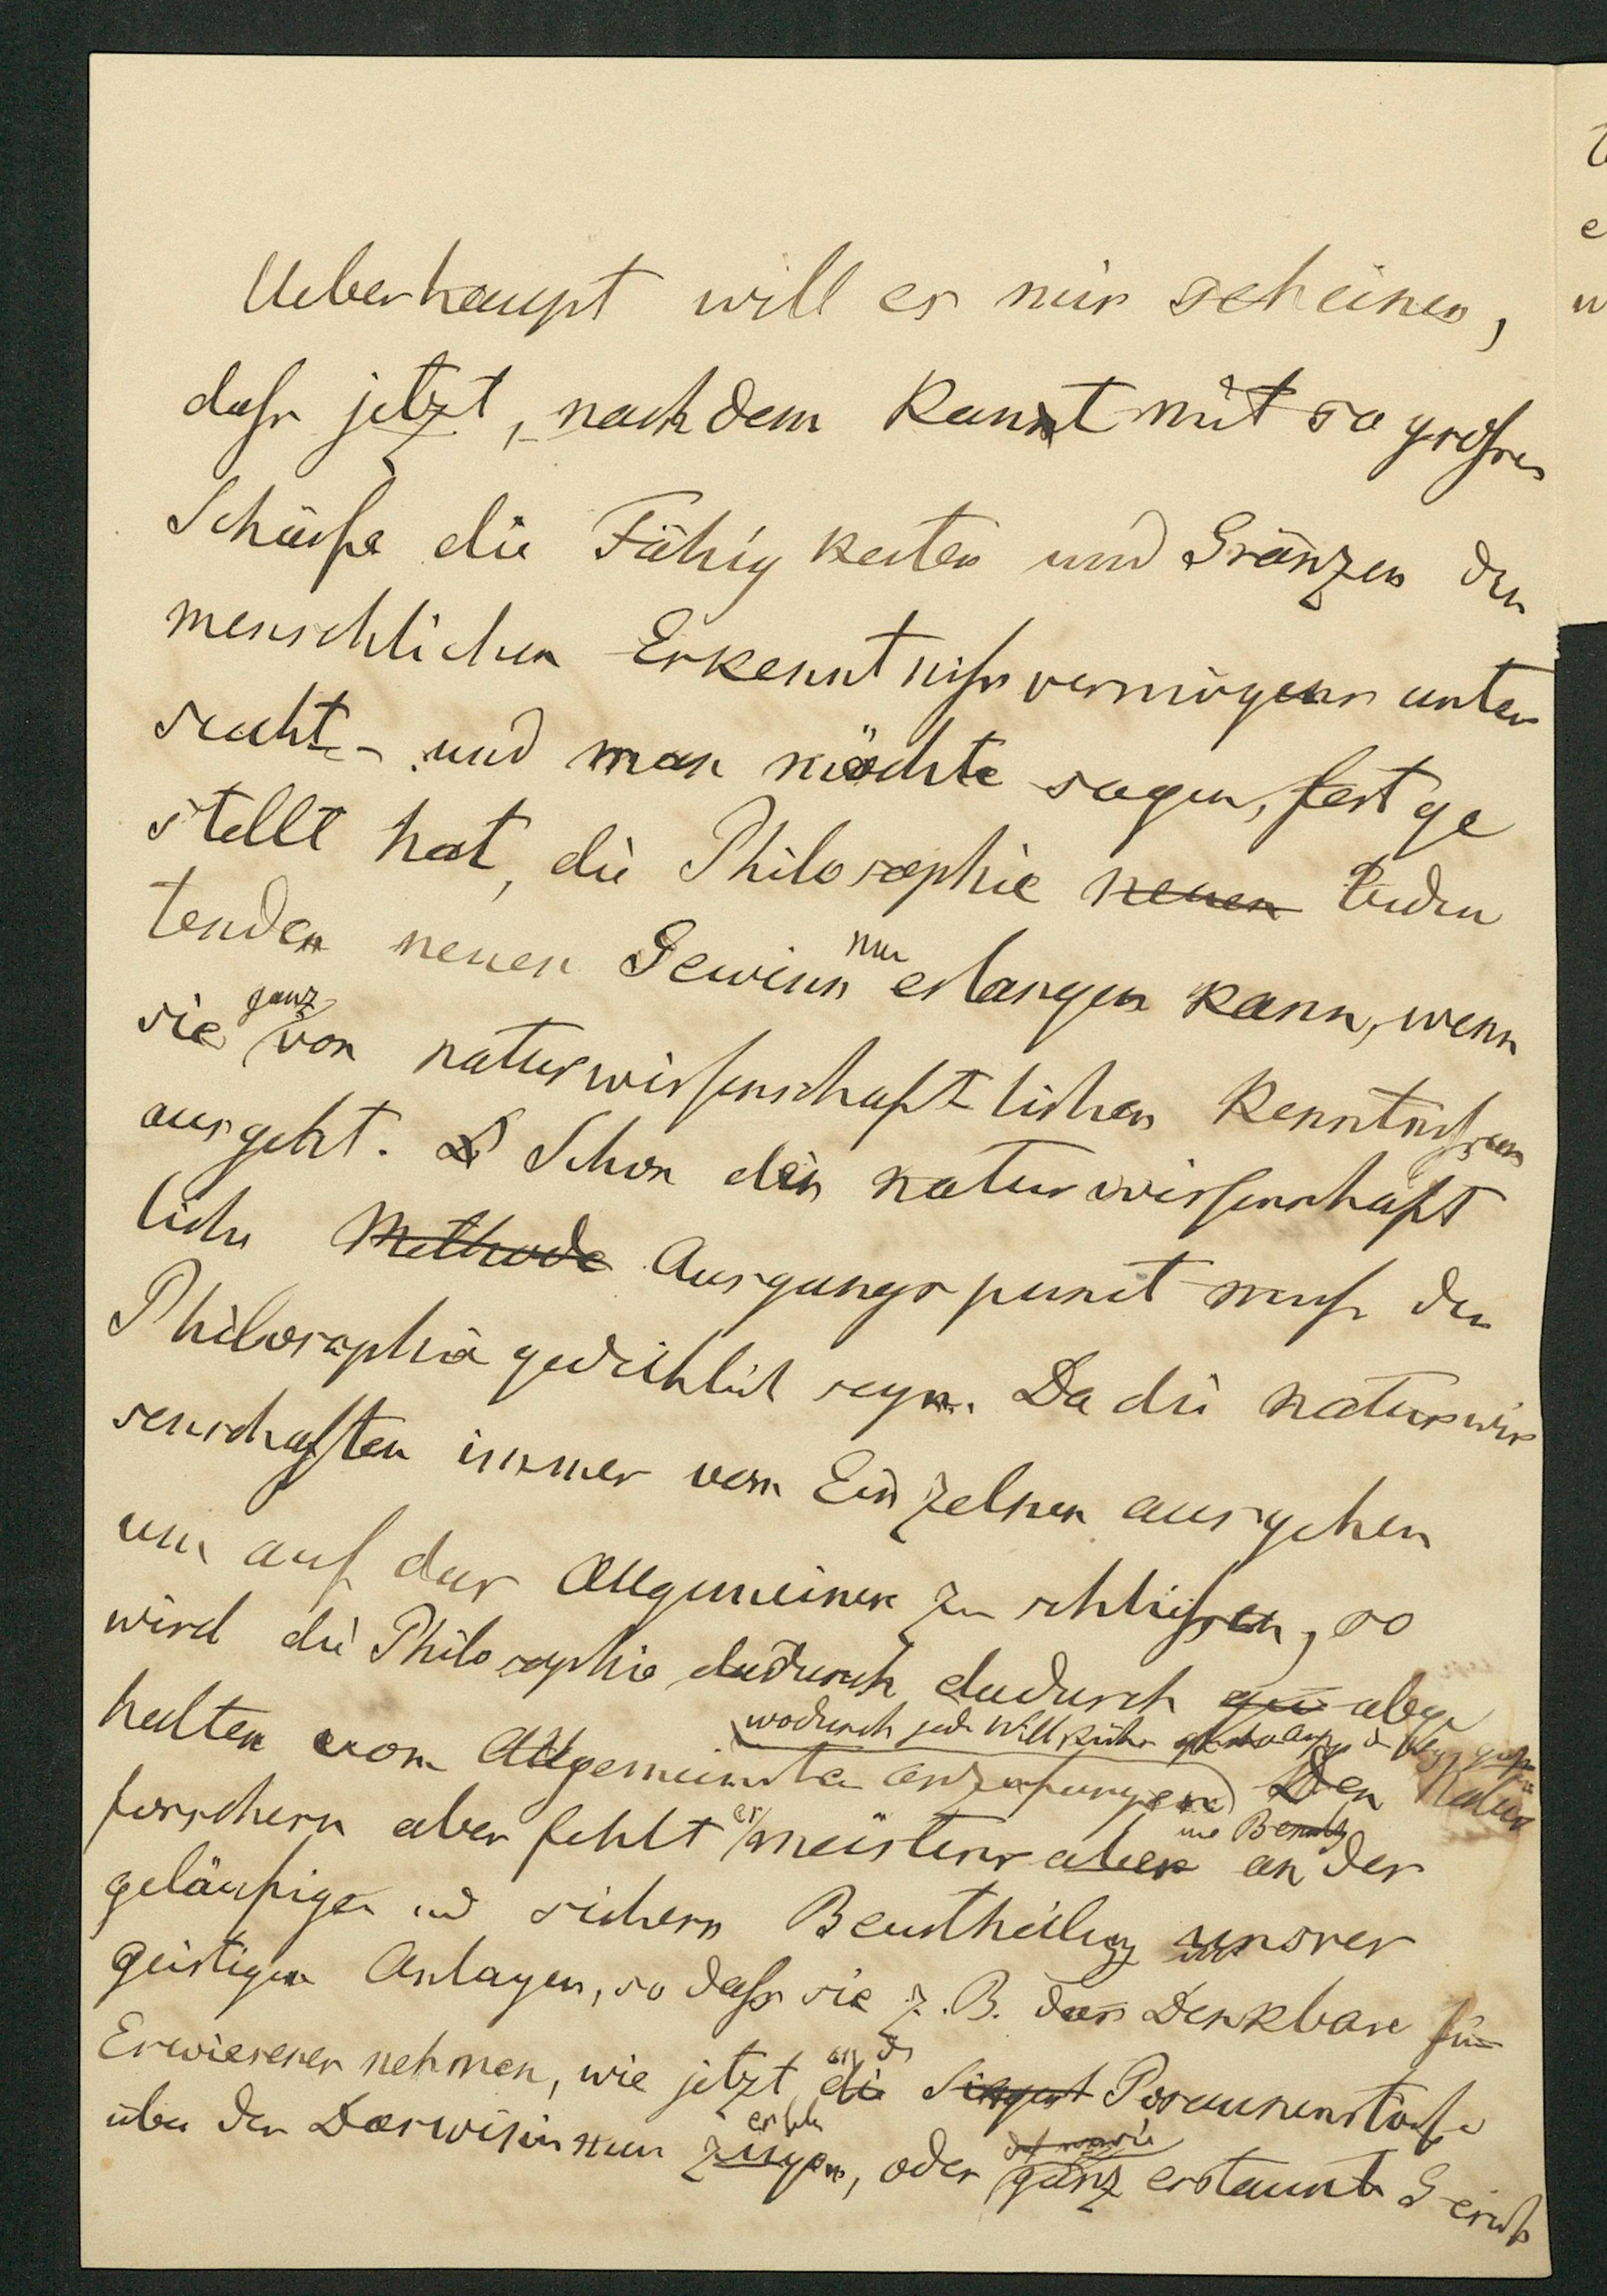 Ueberhaupt will es mir scheinen,
dass jetzt, nachdem Kant mit so grosser
Schärfe die Fähigkeiten und Gränzen des
menschlichen Erkenntnissvermögens unter
sucht - und man möchte sagen, fest ge
stellt hat, die Philosophie neuen bedeu
tenden neuen Gewinn nur erlangen kann, wenn
sie ganz von naturwissenschaftlichen Kenntnissen
ausgeht. Schon der naturwissenschaft
liche Methode Ausgangspunct muss der
Philosophie gedeihlich seyn. Da die Naturwis
senschaften immer vom Einzelnen ausgehen
um auf das Allgemeine zu schliessen, so
wird die Philosophie dadurch dadurch abge
wodurch jede Willkühr
halten vom Allgemeinsten anzufangen. Den Natur
forschern aber fehlt es meistens aber an der
geläufigen und sichern Beurtheilung unsrer
geistigen Anlagen, so dass sie z. B. das Denkbare für
Erwiesenes nehmen, wie jetzt die Posaunenstösse
über den Darwinismus zeigen, oder ganz erstaunt